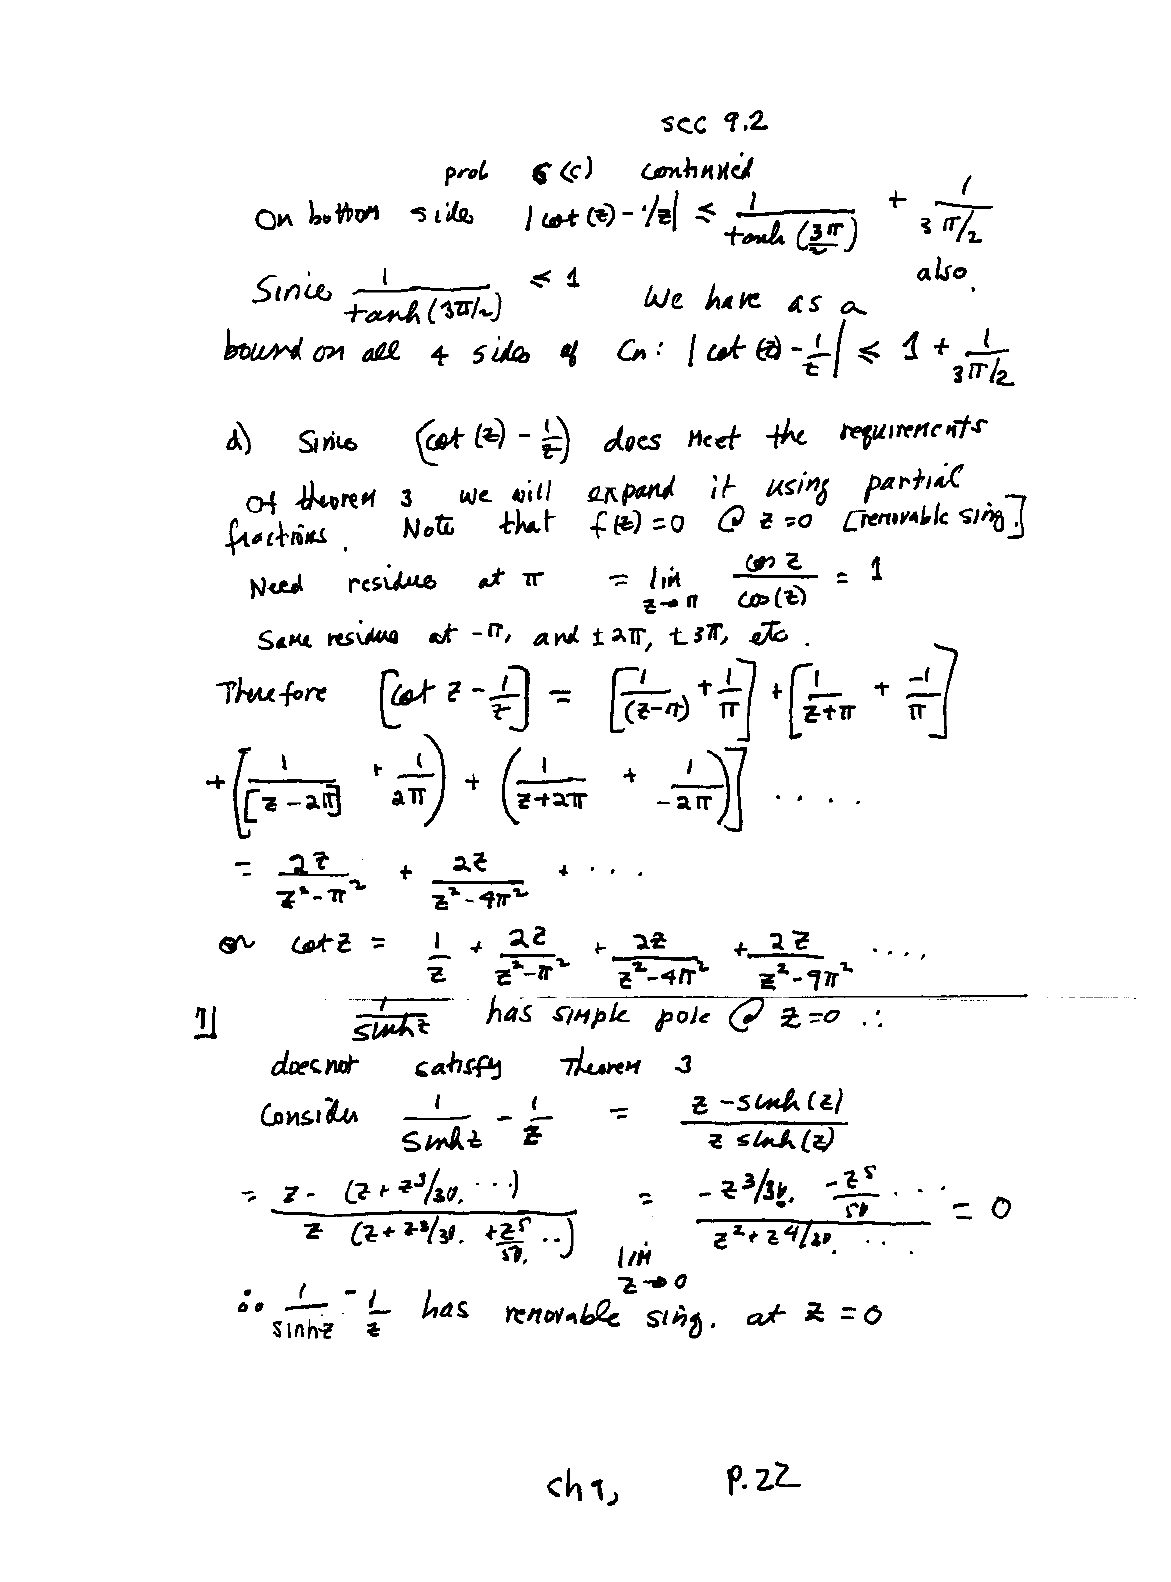 sec 9.2
prob 6 (c) continued
On bottom side |cot(z) - 1/z| ≤ 1/tanh(3π/2) + 1/(3π/2)
Since 1/tanh(3π/2) ≤ 1 We have as a also
bound on all 4 sides of Cn: |cot(z) - 1/z| ≤ 1 + 1/(3π/2)
d) Since (cot(z) - 1/z) does meet the requirements
of theorem 3 we will expand it using partial
fractions. Note that f(z) = 0 @ z = 0 [removable sing.]
Need residue at π = lim z→π cos z/cos(z) = 1
Same residue at -π, and ±2π, ±3π, etc.
Therefore [cot z - 1/z] = [1/(z-π) + 1/π] + [1/(z+π) + -1/π]
+ [(1/[z-2π] + 1/2π) + (1/(z+2π) + 1/-2π)] ....
= 2z/(z²-π²) + 2z/(z²-4π²) + ...
or cot z = 1/z + 2z/(z²-π²) + 2z/(z²-4π²) + 2z/(z²-9π²) ....
7] 1/sinh z has simple pole @ z = 0 ∴
does not satisfy Theorem 3
Consider 1/sinh z - 1/z = (z - sinh(z))/(z sinh(z))
= (z - (z + z³/3!. ...))/(z (z + z³/3!. + z⁵/5!. ..)) = lim z→0 (-z³/3!. - z⁵/5! ....)/(z² + z⁴/3!. ...) = 0
∴ 1/sinh z - 1/z has removable sing. at z = 0
ch 9, p. 22